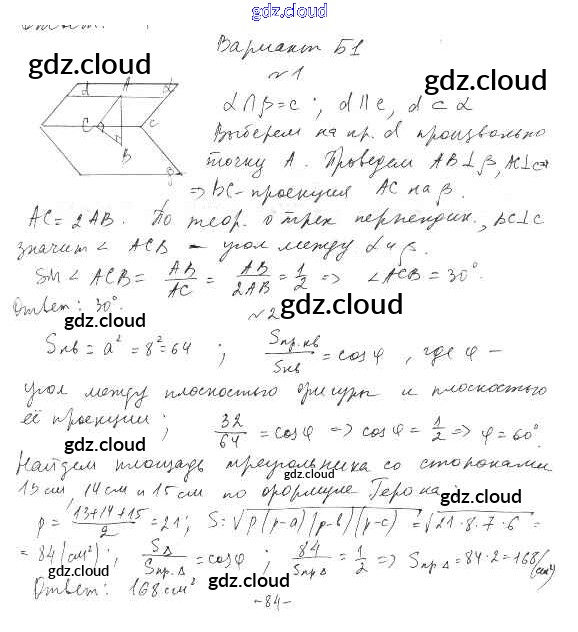 gdz.cloud
Ответ:
Вариант Б1
gdz.cloud
gdz.cloud
№1
d A α
C c
B
β
α∩β=c; d∥c, d⊂α
Выберем на пр. d произвольно
точку A. Проведем AB⊥β, AC⊥c⇒
⇒ BC-проекция AC на β.
AC=2AB. По теор. о трех перпендик., BC⊥c
значит ∠ACB – угол между α и β.
Sin∠ACB = AB/AC = AB/2AB = 1/2 ⇒ ∠ACB=30°.
Ответ: 30°.
gdz.cloud
№2
gdz.cloud
Sкв = a² = 8² = 64 ; Sпр.кв/Sкв = cosφ, где φ –
gdz.cloud
угол между плоскостью фигуры и плоскостью
её проекции; 32/64 = cosφ ⇒ cosφ = 1/2 ⇒ φ=60°.
gdz.cloud
gdz.cloud
Найдем площадь треугольника со сторонами
13см, 14см и 15см по формуле Герона:
gdz.cloud
p = (13+14+15)/2 = 21; S=√p(p-a)(p-b)(p-c) = √21·8·7·6 =
= 84(см²); SΔ/Sпр.Δ = cosφ; 84/Sпр.Δ = 1/2 ⇒ Sпр.Δ = 84·2 = 168(см²)
gdz.cloud
gdz.cloud
Ответ: 168см²
-84-